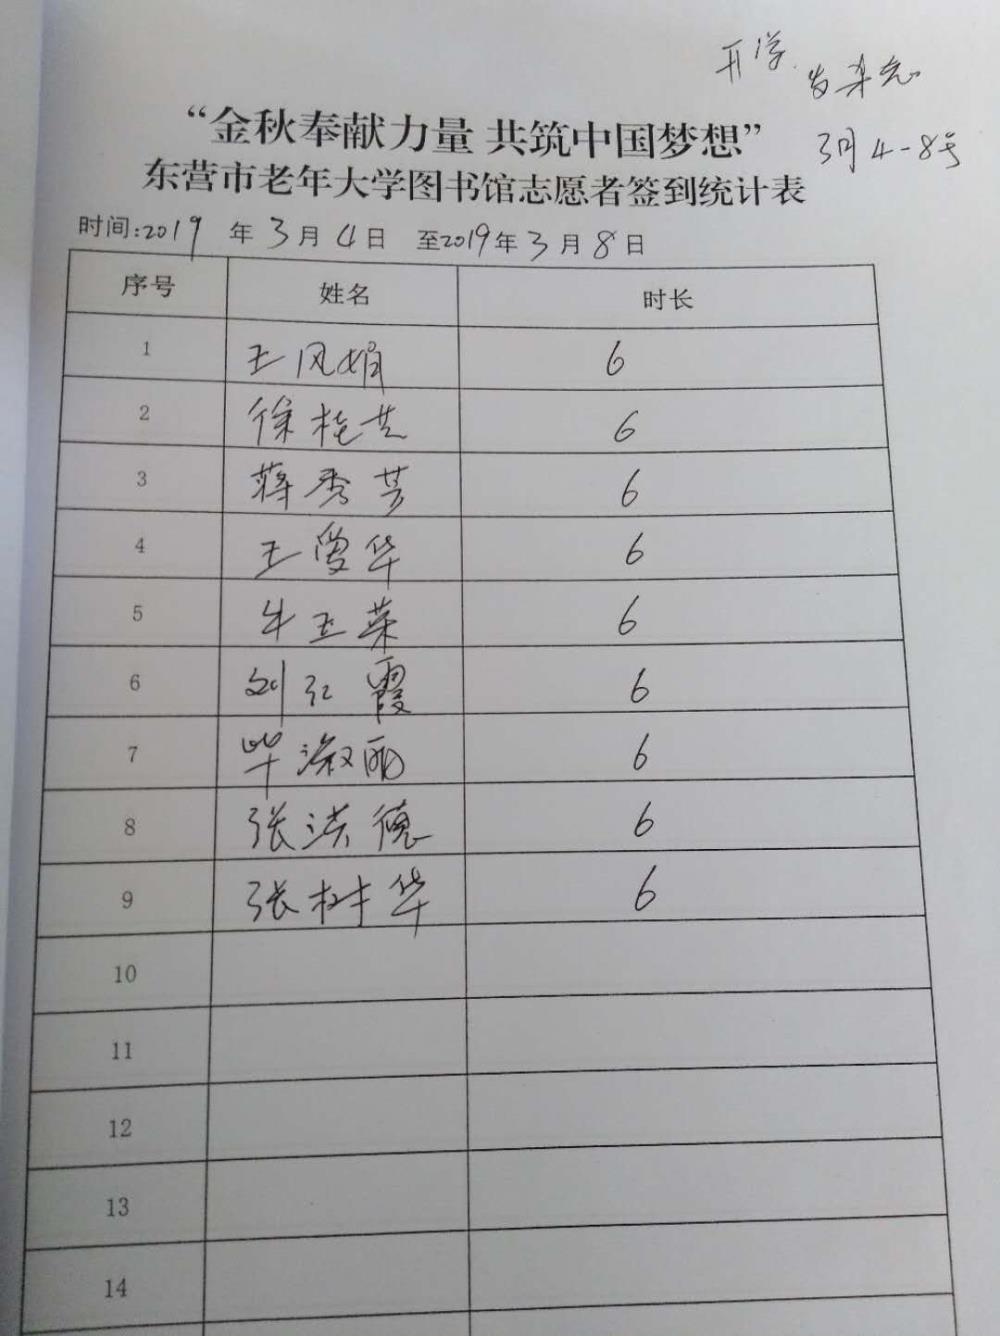 开学 发杂志
3月4-8号
“金秋奉献力量 共筑中国梦想”
东营市老年大学图书馆志愿者签到统计表
时间:2019 年 3 月 4 日 至2019年 3 月 8 日
序号 姓名 时长
1 王风娟 6
2 徐桂兰 6
3 蒋秀芸 6
4 王爱华 6
5 牛玉荣 6
6 刘红霞 6
7 毕淑丽 6
8 张洪德 6
9 张树华 6
10
11
12
13
14